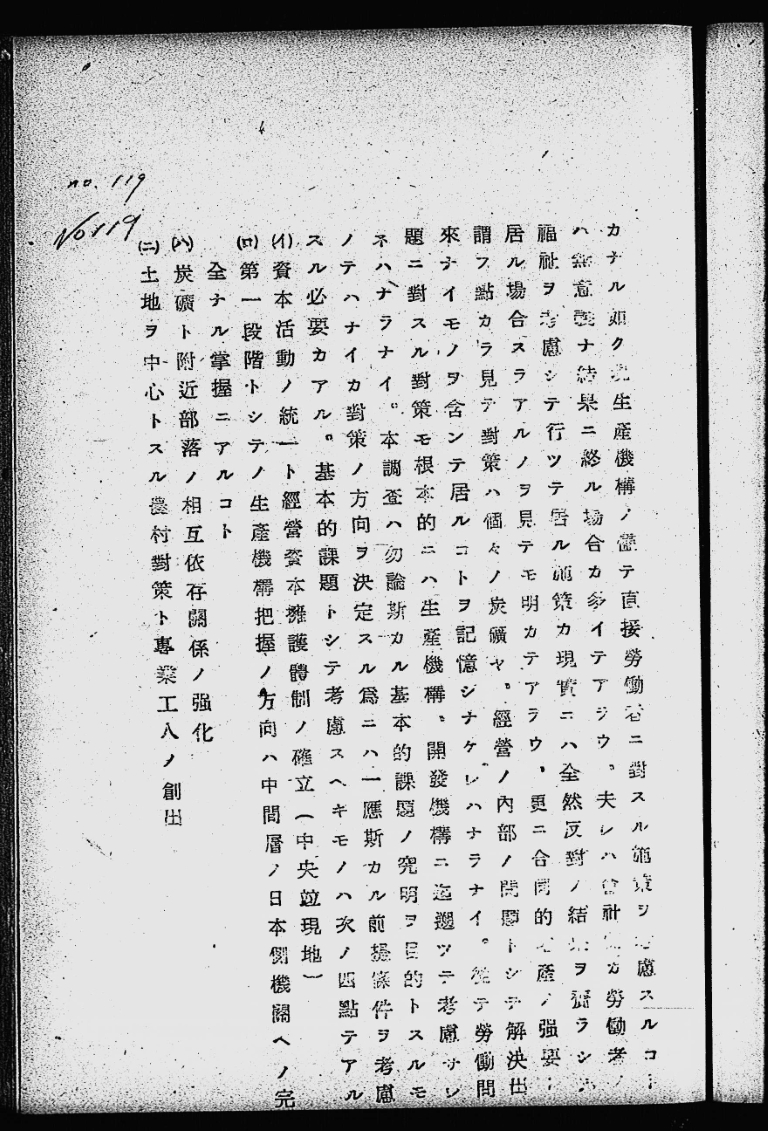 no. 119
No 119
カナル如ク 生産機構ノ テ直接勞働者ニ對スル施策ヲ考慮スルコト
ハ無意義ナ結果ニ終ル場合カ多イテアラウ。夫レハ會社 カ勞働者ノ
福祉ヲ考慮シテ行ツテ居ル施策カ現實ニハ全然反對ノ結果ヲ齎ラシ
居ル場合スラアルノヲ見テモ明カテアラウ、更ニ合同的生産ノ强要
謂フ點カラ見テ對策ハ個々ノ炭礦ヤ。經營ノ內部ノ問題トシテ解決出
來ナイモノヲ含ンテ居ルコトヲ記憶シナケレハナラナイ。從テ勞働問
題ニ對スル對策モ根本的ニハ生産機構。開發機構ニ迄遡ツテ考慮サレ
ネハナラナイ。本調査ハ勿論斯カル基本的課題ノ究明ヲ目的トスルモ
ノテハナイカ對策ノ方向ヲ決定スル爲ニハ一應斯カル前提條件ヲ考慮
スル必要カアル。基本的課題トシテ考慮スヘキモノハ次ノ四點テアル
(イ)資本活動ノ統一ト經營資本擁護體制ノ確立(中央竝現地)
(ロ)第一段階トシテノ生産機構把握ノ方向ハ中間層ノ日本側機關ヘノ完
全ナル掌握ニアルコト
(ハ)炭礦ト附近部落ノ相互依存關係ノ强化
(ニ)土地ヲ中心トスル農村對策ト專業工人ノ創出